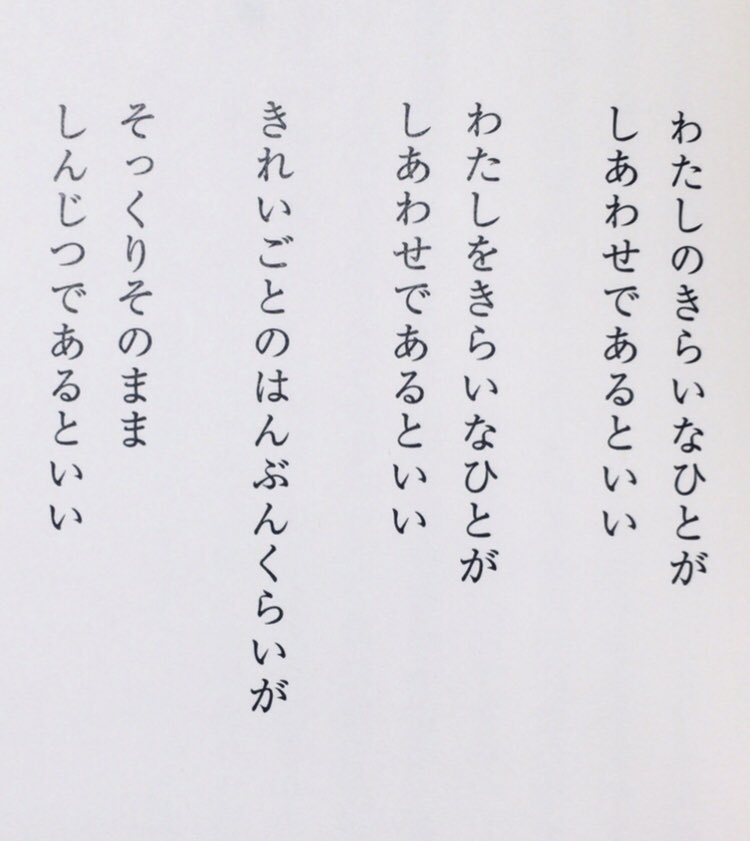 わたしのきらいなひとが
しあわせであるといい
わたしをきらいなひとが
しあわせであるといい
きれいごとのはんぶんくらいが
そっくりそのまま
しんじつであるといい